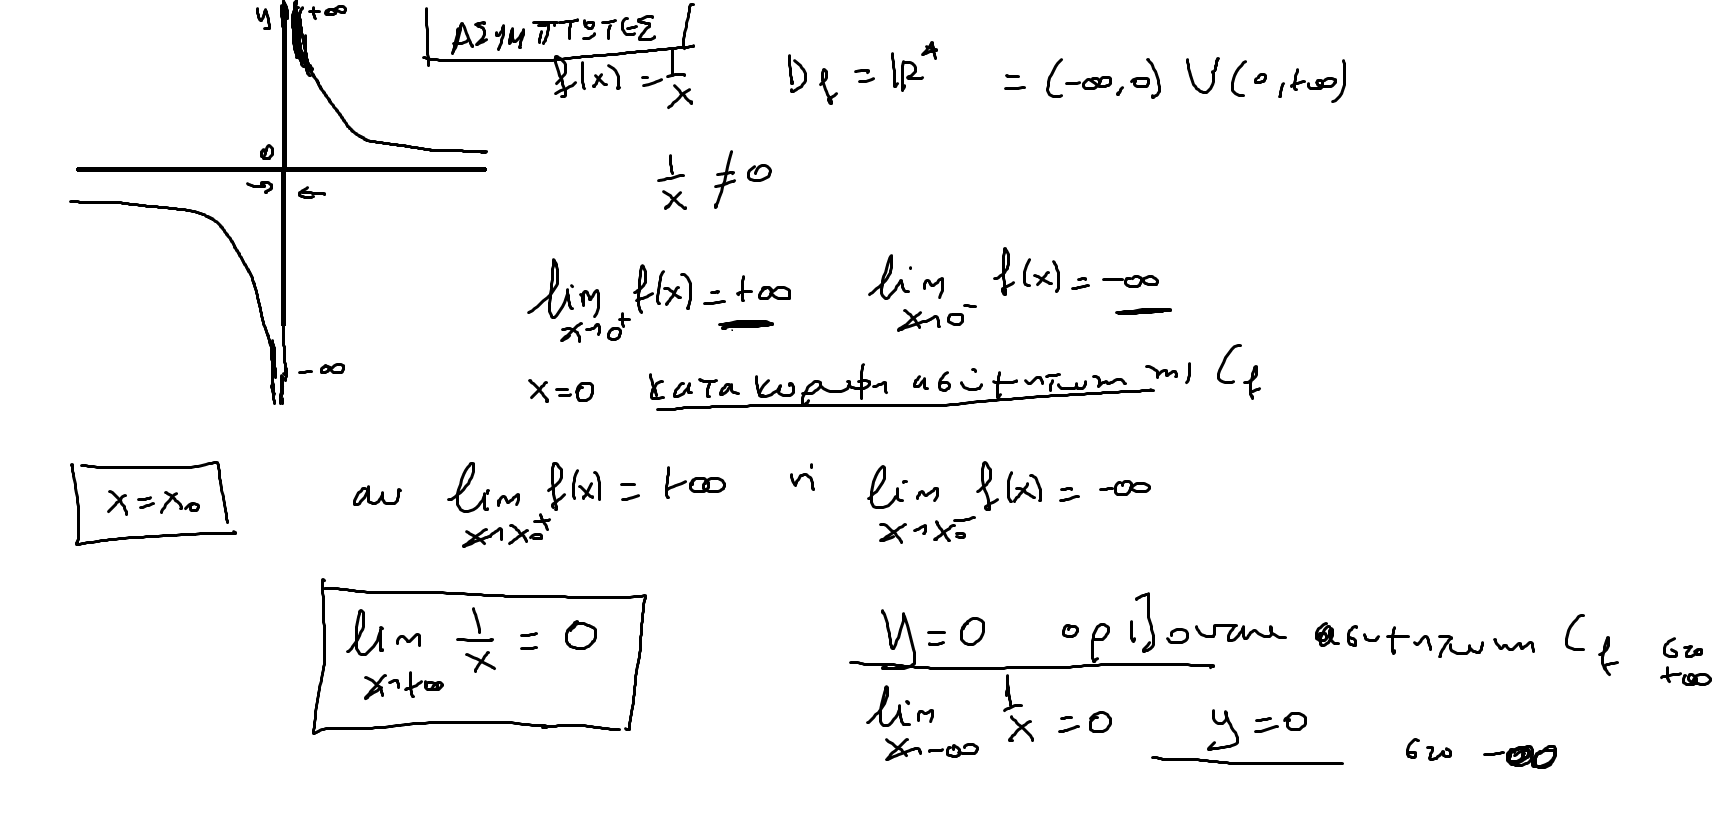 y +∞
ΑΣΥΜΠΤΩΤΕΣ
f(x) = 1/x Df = ℝ* = (-∞,0) ∪ (0,+∞)
0
1/x ≠ 0
→ ←
lim x→0⁺ f(x) = +∞ lim x→0⁻ f(x) = -∞
-∞
x=0 κατακορυφη ασύμπτωτη της Cf
x=x₀ αν lim x→x₀⁺ f(x) = +∞ ή lim x→x₀⁻ f(x) = -∞
lim x→+∞ 1/x = 0 y=0 οριζοντια ασυμπτωτη Cf στο +∞
lim x→-∞ 1/x = 0 y=0 στο -∞